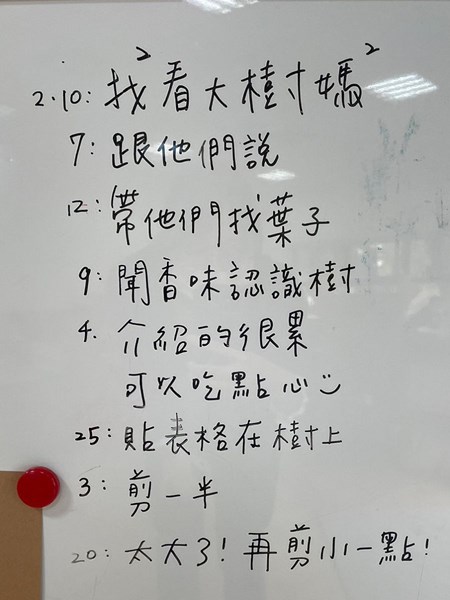 2.10: 找²看大樹媽²
7: 跟他們說
12: 帶他們找葉子
9: 聞香味認識樹
4. 介紹的很累
可以吃點心
25: 貼表格在樹上
3: 剪一半
20: 太大了! 再剪小一點!